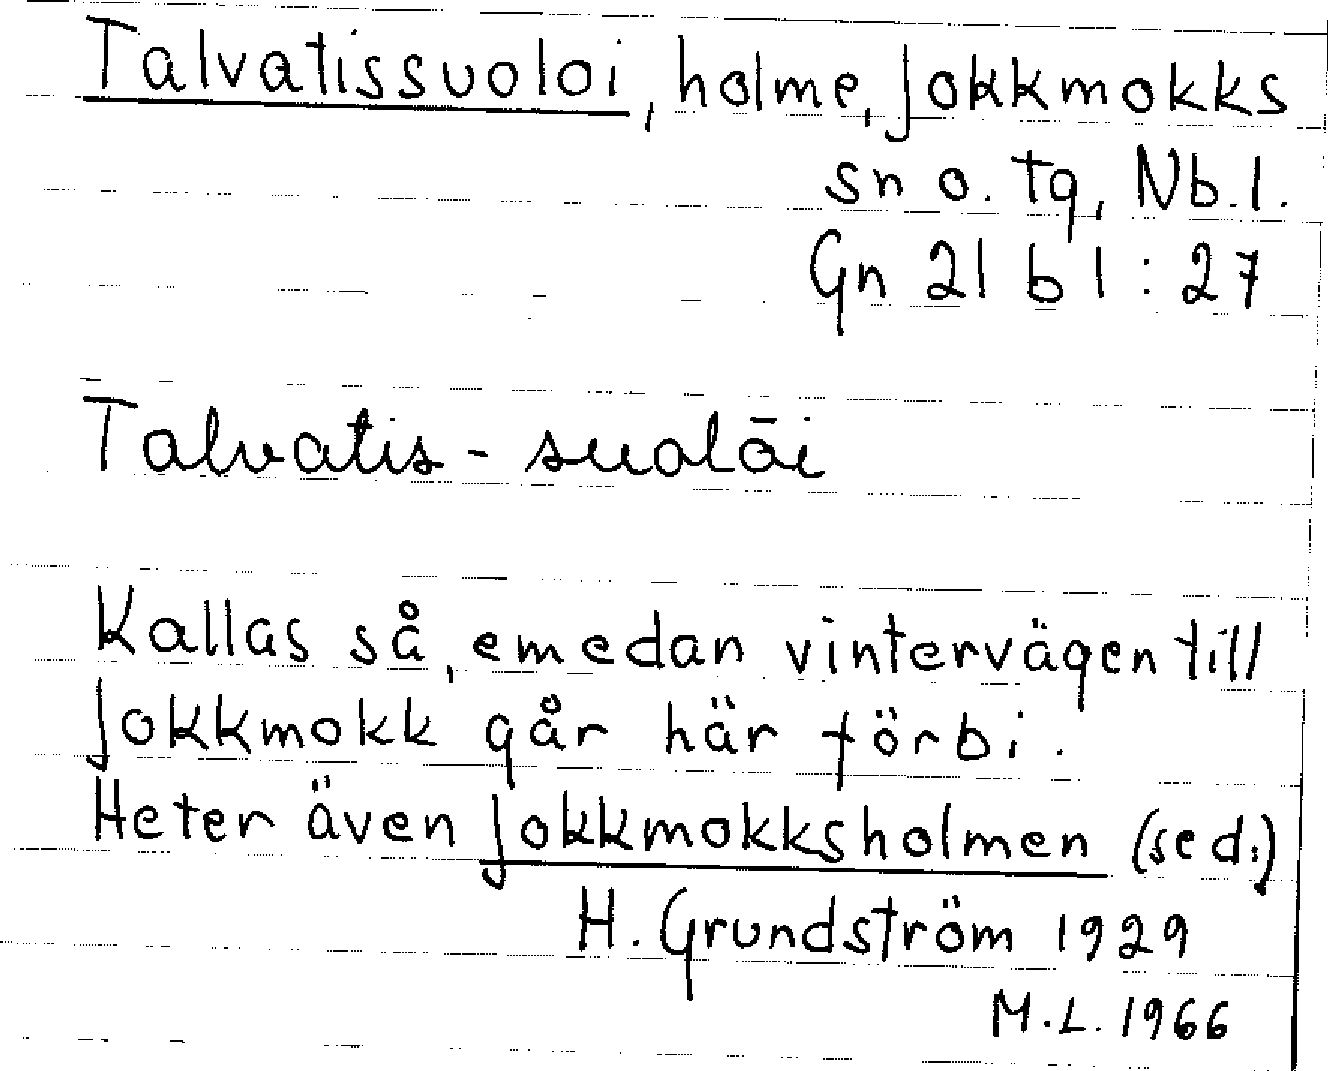 Talvatissuoloi, holme, Jokkmokks
sn o. tg, Nb.l.
Gn 21 b 1 : 27
Talvatis - suolōi
Kallas så, emedan vintervägen till
Jokkmokk går här förbi.
Heter även Jokkmokksholmen (se d:)
H. Grundström 1929
M.L. 1966